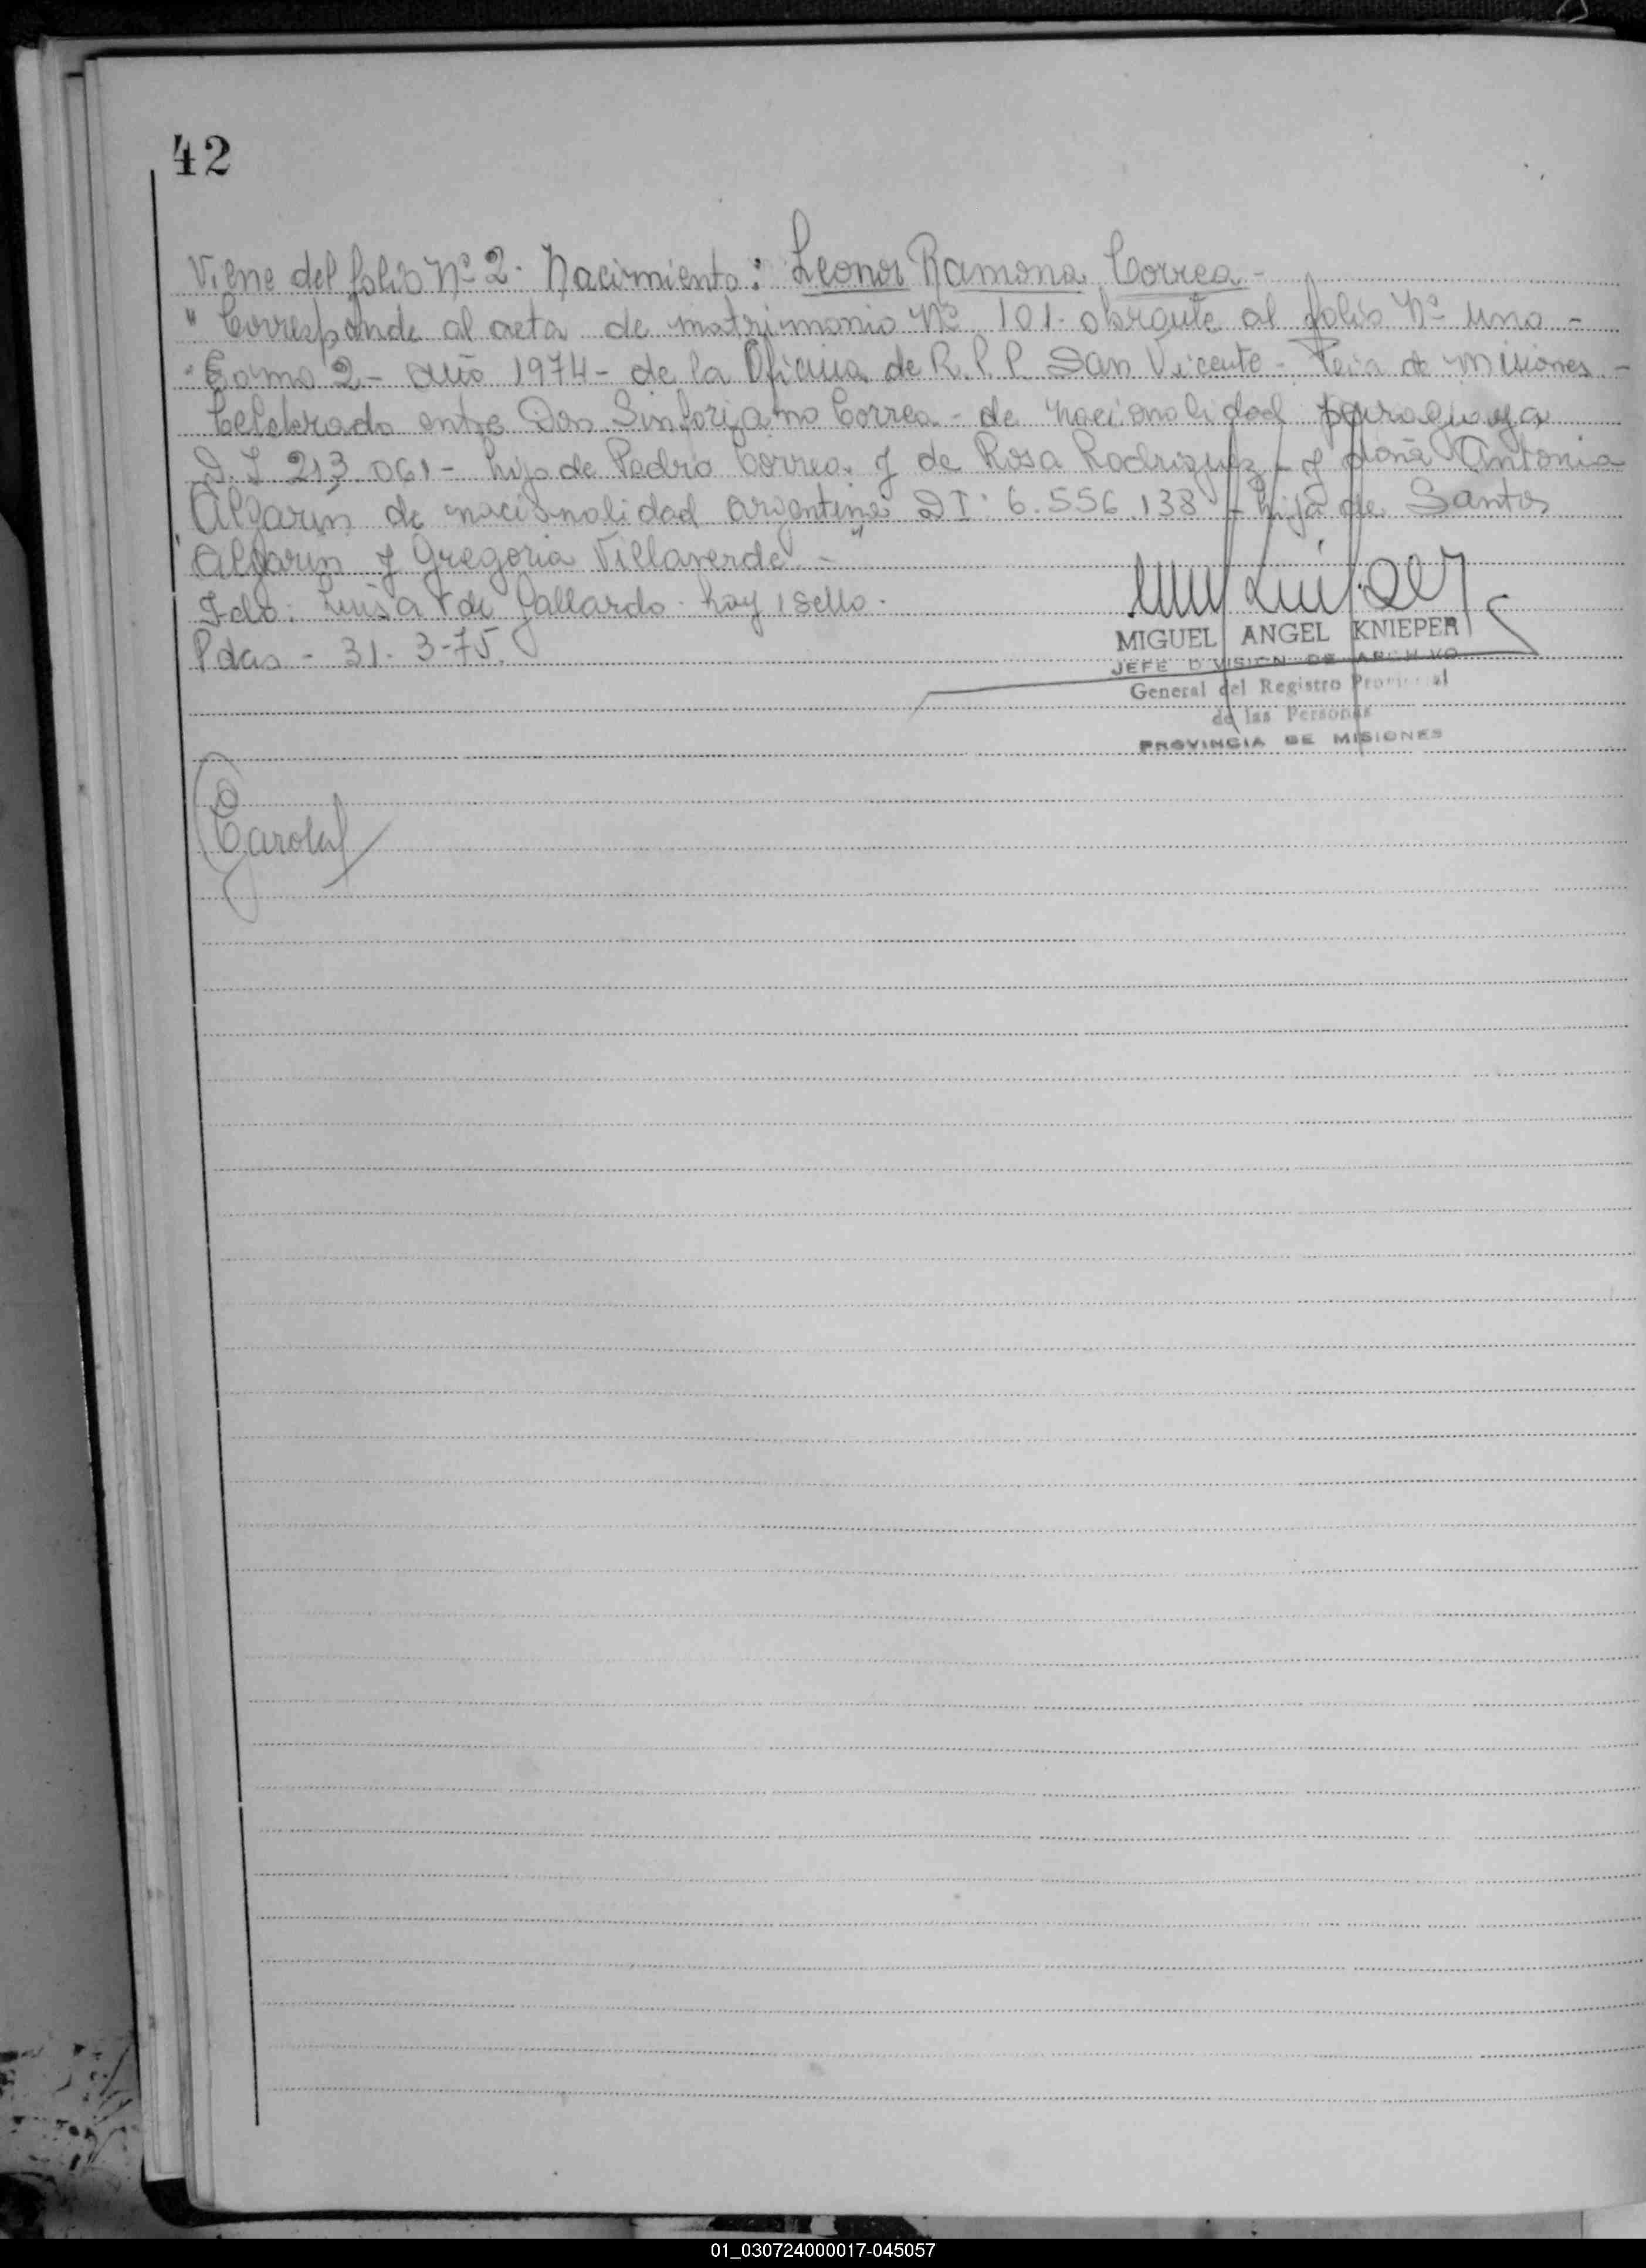 42
Viene del folio Nº 2. Nacimiento: Leonor Ramona Correa -
" Corresponde al acta de matrimonio Nº 101- obrante al folio Nº uno -
" Tomo 2 - año 1974 - de la Oficina de R. P. P. San Vicente - Pcia de Misiones -
Celebrado entre Don Sinforiano Correa - de nacionalidad paraguaya
D. I 213.061 - hijo de Pedro Correa y de Rosa Rodriguez - y doña Antonia
Algarin de nacionalidad argentina D I: 6.556.138 - hija de Santos
Algarin y Gregoria Villaverde". -
Fdo: Luisa V de Gallardo - hay 1 sello -
Pdas - 31-3-75.
MIGUEL ANGEL KNIEPER
JEFE DIVISION DE ARCHIVO
General del Registro Provincial
de las Personas
PROVINCIA DE MISIONES
01_030724000017-045057